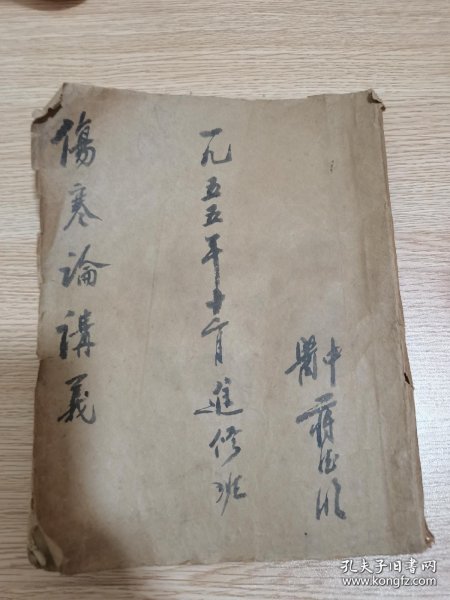 傷寒論講義
一九五五年十一月進修班
中醫 蔣
孔夫子旧书网
www.kongfz.com